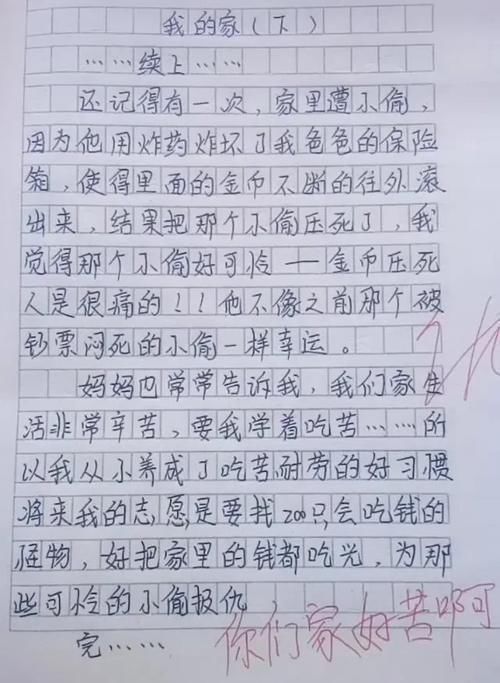 我的家（下）
……续上……
还记得有一次，家里遭小偷，
因为他用炸药炸坏了我爸爸的保险
箱，使得里面的金币不断的往外滚
出来，结果把那个小偷压死了，我
觉得那个小偷好可怜——金币压死
人是很痛的！！他不像之前那个被
钞票闷死的小偷一样幸运。
妈妈也常常告诉我，我们家生
活非常辛苦，要我学着吃苦……所
以我从小养成了吃苦耐劳的好习惯
将来我的志愿是要找200只会吃钱的
怪物，好把家里的钱都吃光，为那
些可怜的小偷报仇
完……
你们家好苦啊可